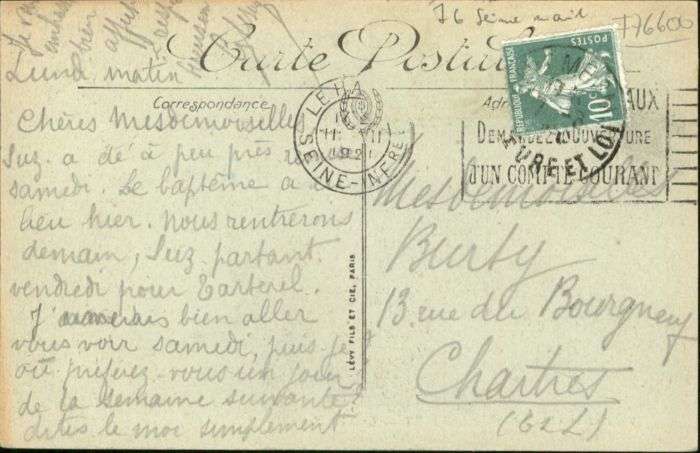 76 Seine marit
776600
Carte Postale
Correspondance
RÉPUBLIQUE FRANÇAISE
POSTES
10
LE HA
11
192
SEINE-INFRE
AUX
DEMANDEZ L'OUVERTURE
D'UN COMPTE COURANT
EURE ET LOI
Lundi matin
Chères Mesdemoiselles
Suz. a dé à peu près
samedi. Le baptême a e
lieu hier. Nous rentrerons
demain, Suz. partant
vendredi pour
J'aimerais bien aller
vous voir samedi, puis-je
où préférez-vous un jour
de la semaine suivante
dites le moi simplement
Je
affec
LÉVY FILS ET CIE, PARIS
Mesdemoiselles
Burty
13 rue du Bourgneuf
Chartres
(E & L)